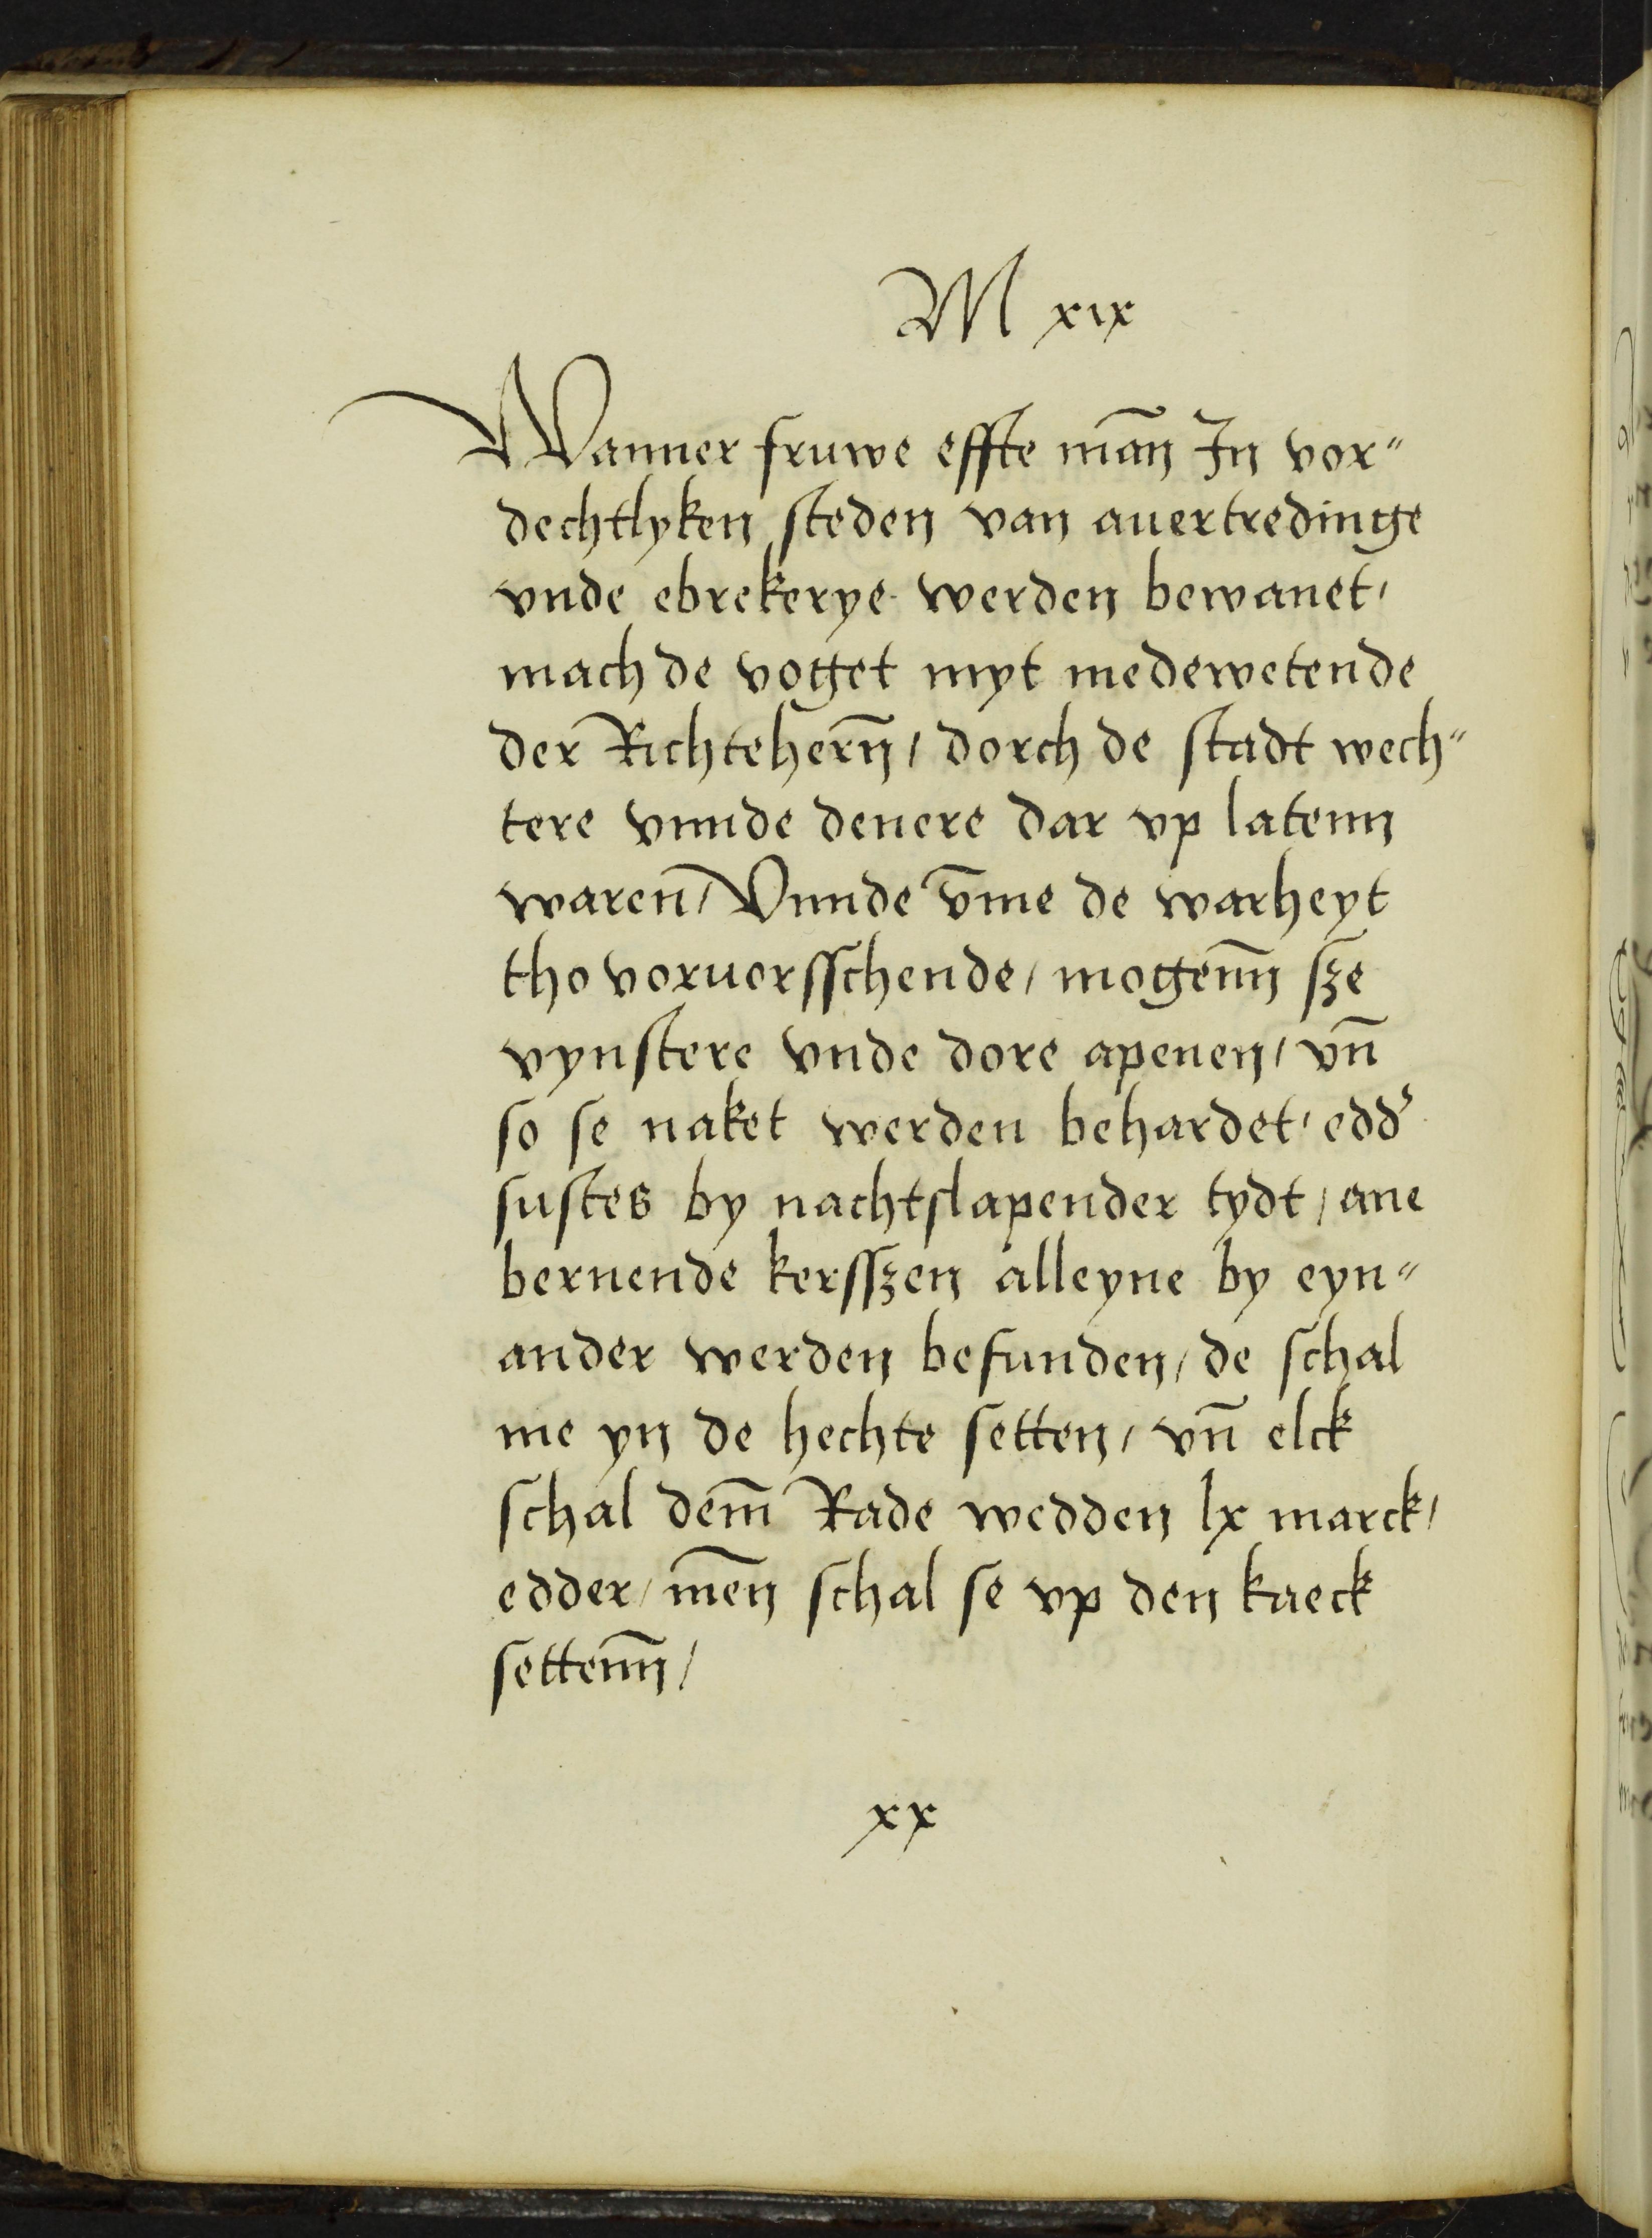 M xix
Wanner fruwe effte mān In vor⸗
dechtlyken steden van auertredinge
vnde ebrekerye werden bewanet /
mach de voget myt medewetende
der Richteherñ / dorch de stadt wech⸗
tere vnnde denere dar vp latenn
waren̄ / Vnnde v̄me de warheyt
tho voruorsschende / mogenn̄ sze
vynstere vnde dore apenen / vn̄
so se naket werden behardet / edd̕
sustes by nachtslapender tydt / ane
bernende kersszen alleyne by eyn⸗
ander werden befunden / de schal
me yn de hechte setten / vn̄ elck
schal dem̄ Rade wedden lx marck /
edder / mēn schal se vp den kaeck
settenn̄ /
xx